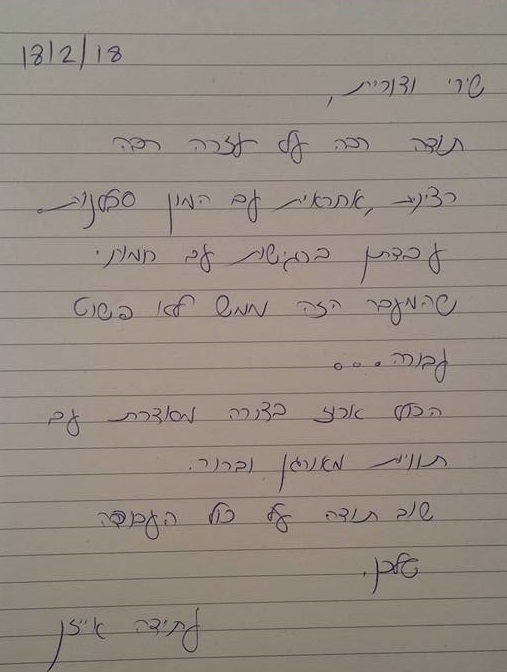 18/2/18
שירי ודורית,
תודה רבה על עזרה רבה
רצינית, אחראית עם המון סבלנות.
עבדתן ברגישות עם חמותי
שהמעבר הזה ממש לא פשוט
עבורה...
הכל ארוז בצורה מסודרת עם
תוויות מאורגן וברור.
שוב תודה על כל העבודה
שלכן.
עתידה אייזן